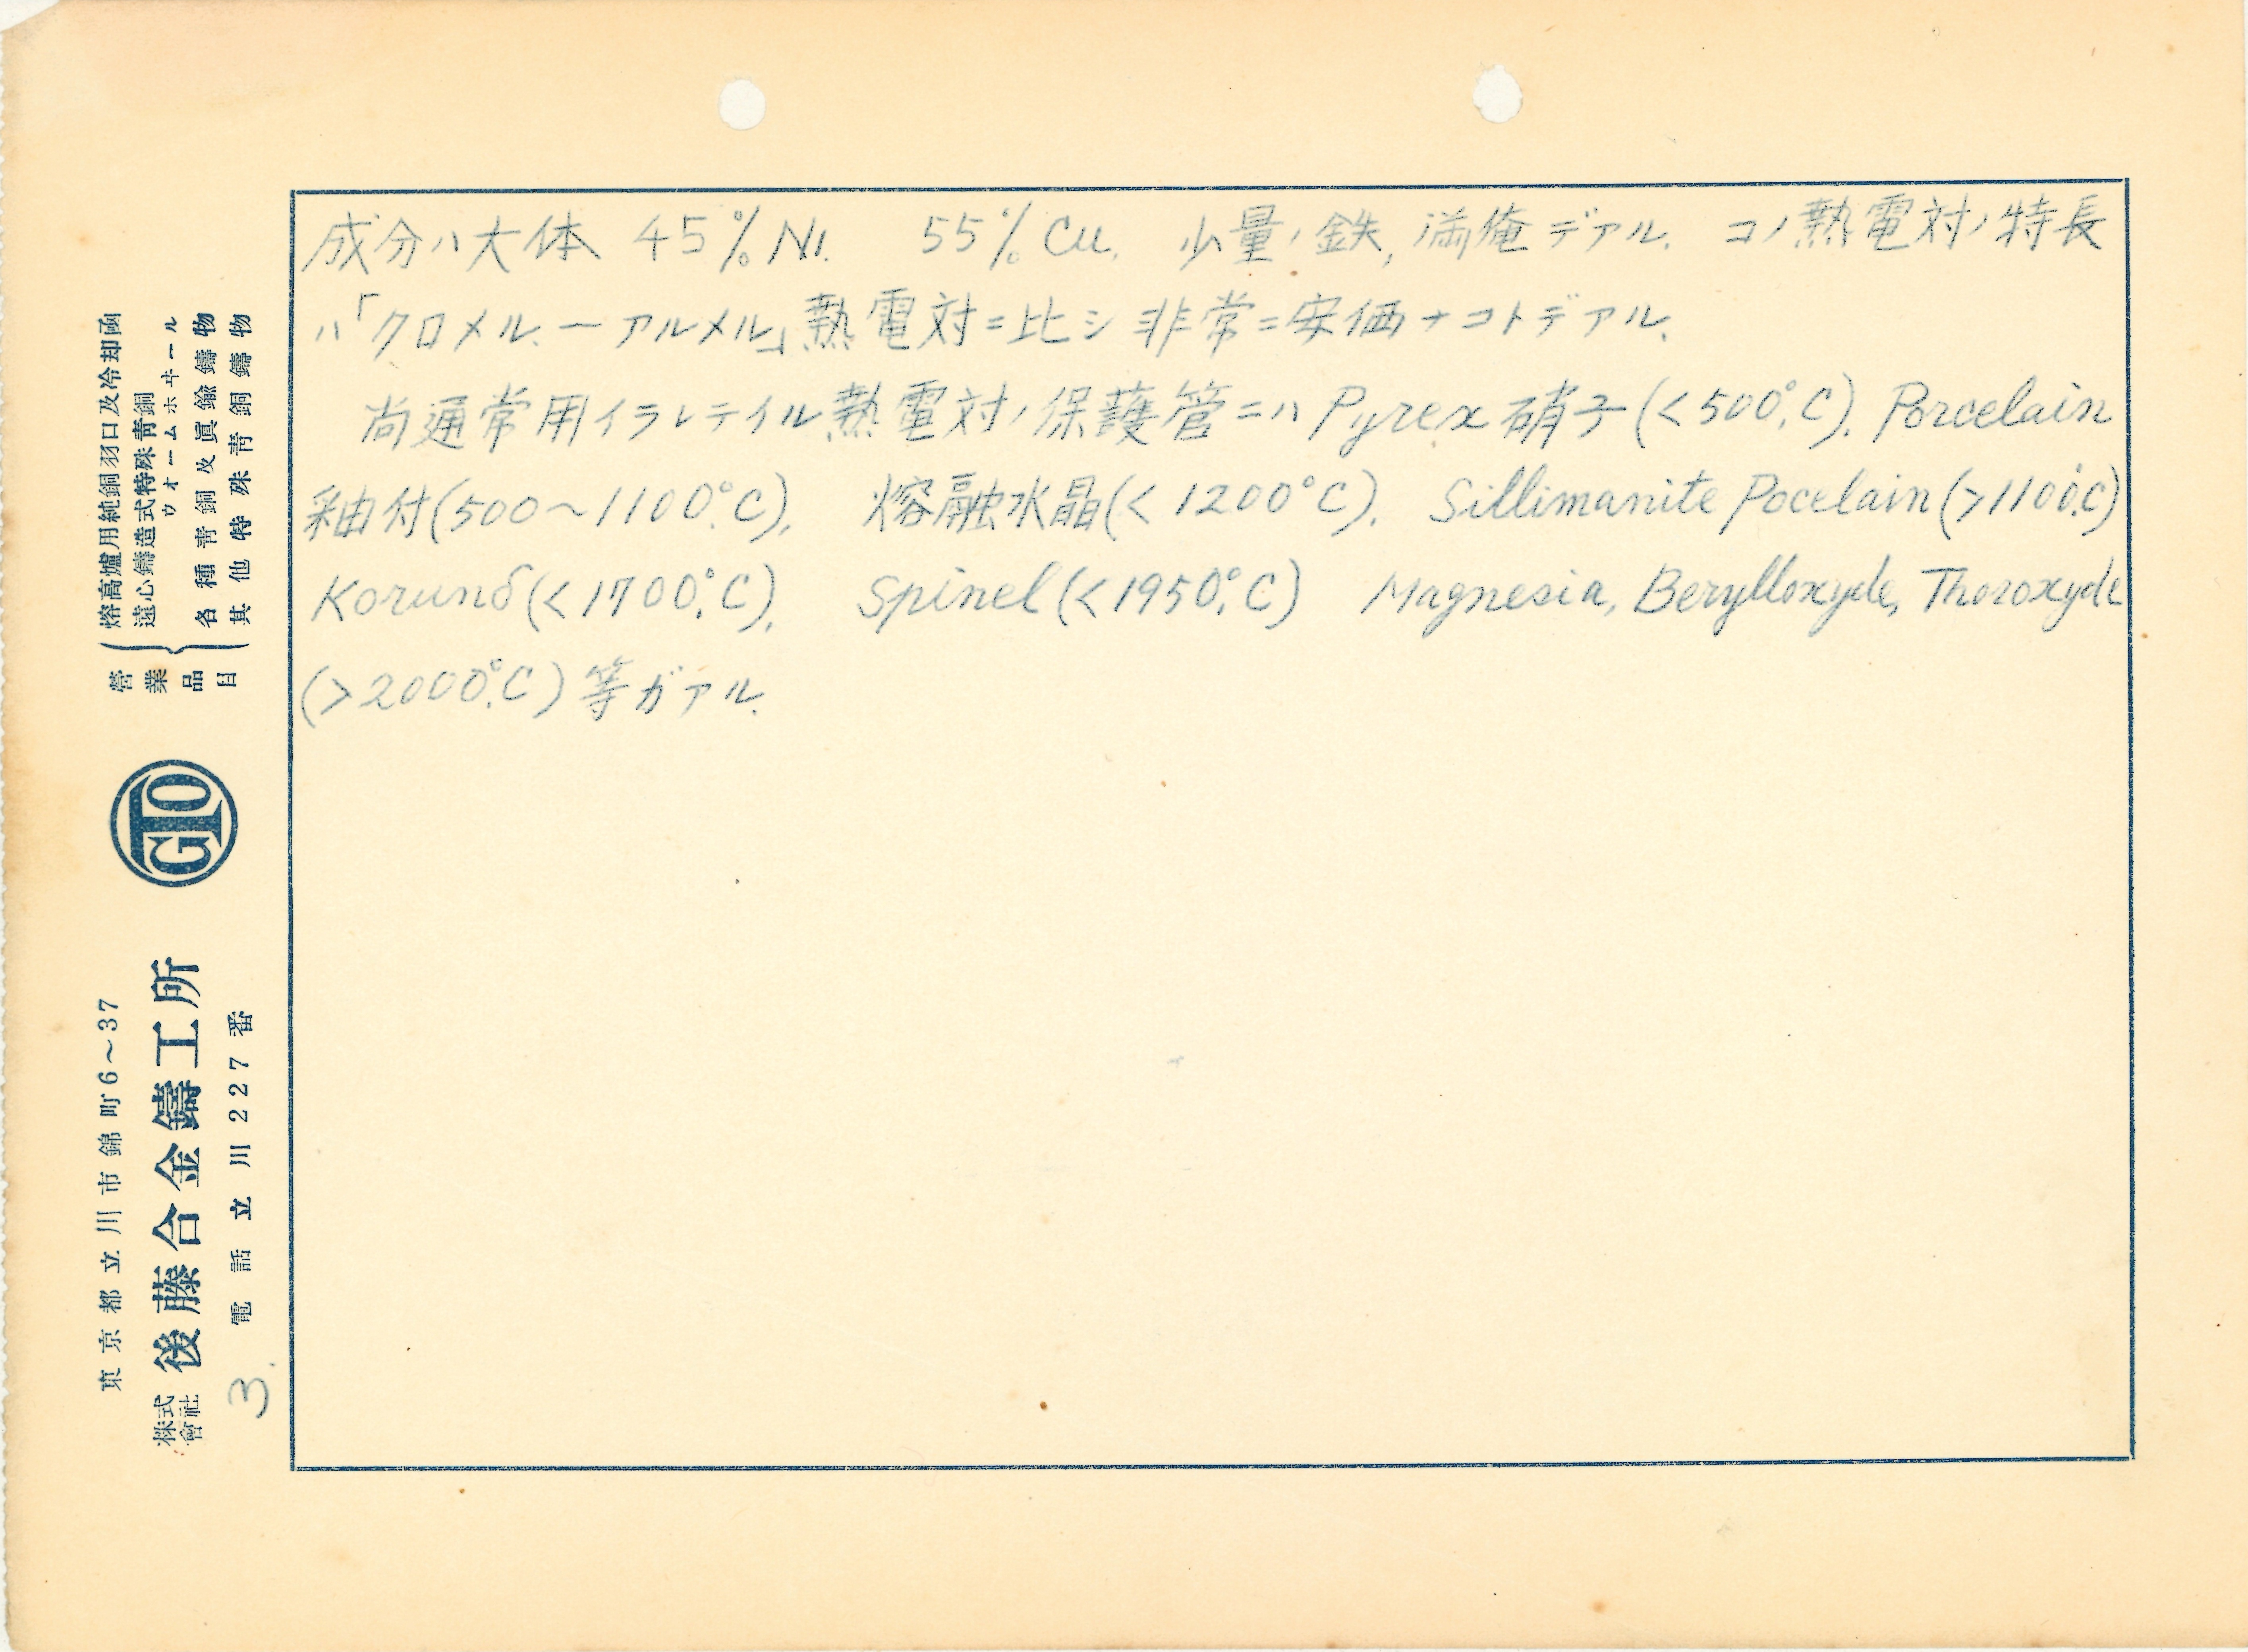 成分ハ大体 45% Ni. 55% Cu. 少量ノ鉄, 満俺デアル. コノ熱電対ノ特長
ハ「クロメル. ー アルメル」熱電対ニ比シ非常ニ安価ナコトデアル.
尚通常用イラレテイル熱電対ノ保護管ニハ Pyrex 硝子(<500°C). Porcelain
釉付(500～1100°C). 熔融水晶(<1200°C). Sillimanite Pocelain(>1100°C)
Korund(<1700°C). Spinel(<1950°C) Magnesia, Berylloxyde, Thoroxyde
(>2000°C)等ガアル.
営業品目
熔高爐用純銅羽口及冷却函
遠心鑄造式特殊靑銅
ウオームホヰール
各種靑銅及眞鍮鑄物
其他特殊靑銅鑄物
GTO
東京都立川市錦町6～37
株式會社 後藤合金鑄工所
電話立川227番
3.